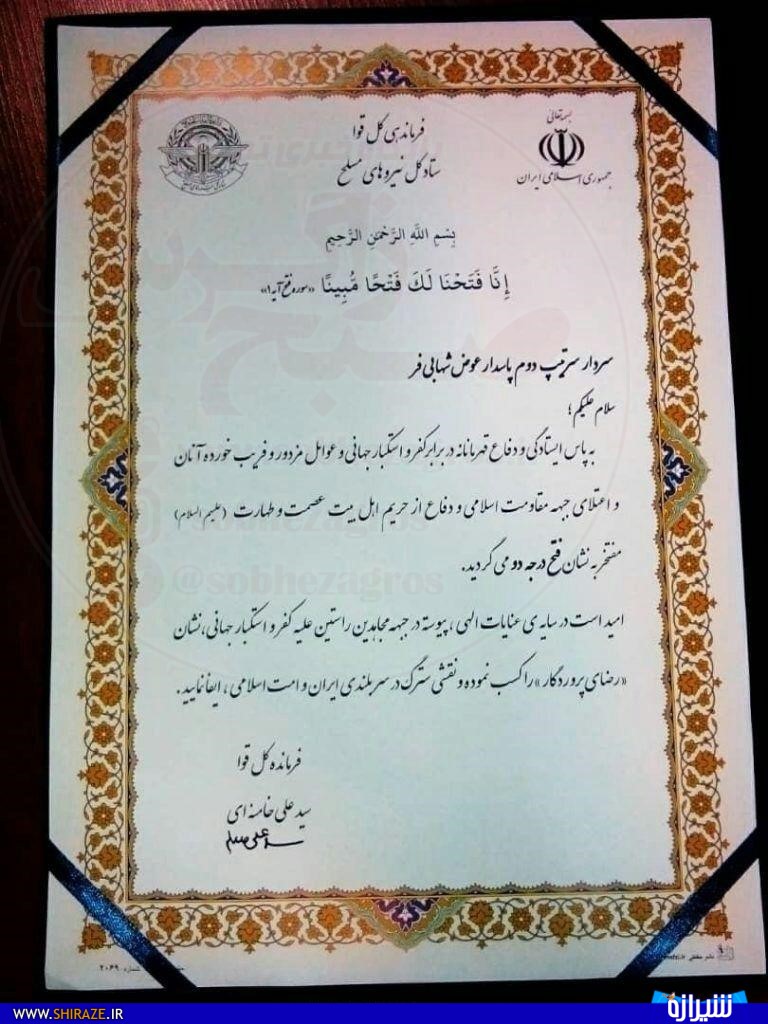 بسمه تعالی
جمهوری اسلامی ایران
فرماندهی کل قوا
ستاد کل نیروهای مسلح
بِسْمِ اللَّهِ الرَّحْمَنِ الرَّحِیمِ
إِنَّا فَتَحْنَا لَكَ فَتْحًا مُّبِينًا «سوره فتح آیه ۱»
سردار سرتیپ دوم پاسدار عوض شهابی فر
سلام علیکم؛
به پاس ایستادگی و دفاع قهرمانانه در برابر کفر و استکبار جهانی و عوامل مزدور و فریب خورده آنان
و اعتلای جبهه مقاومت اسلامی و دفاع از حریم اهل بیت عصمت و طهارت (علیهم السلام)
مفتخر به نشان فتح درجه دو می گردید.
امید است در سایه ی عنایات الهی، پیوسته در جبهه مجاهدین راستین علیه کفر و استکبار جهانی، نشان
«رضای پروردگار» را کسب نموده و نقشی سترگ در سربلندی ایران و امت اسلامی، ایفا نمایید.
فرمانده کل قوا
سید علی خامنه ای
@sobhezagros
شماره ۲۰۶۹
WWW.SHIRAZE.IR
شیرازه